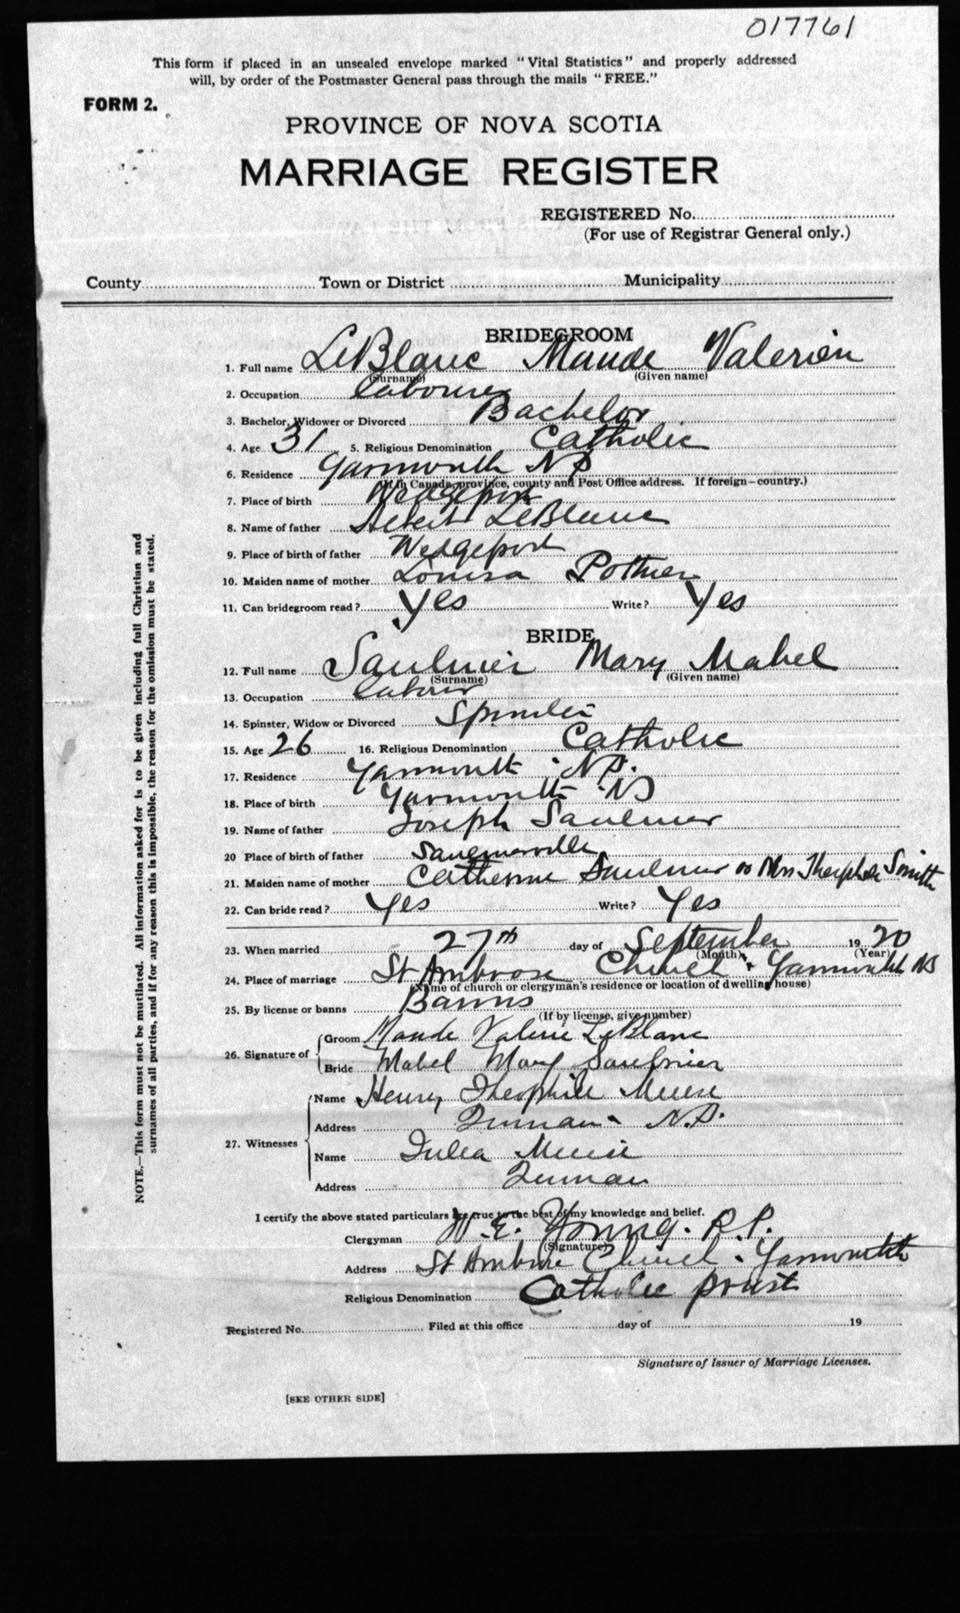 017761
This form if placed in an unsealed envelope marked "Vital Statistics" and properly addressed
will, by order of the Postmaster General pass through the mails "FREE."
FORM 2.
PROVINCE OF NOVA SCOTIA
MARRIAGE REGISTER
REGISTERED No.
(For use of Registrar General only.)
County Town or District Municipality
BRIDEGROOM
1. Full name LeBlanc Maude Valerien
(Surname) (Given name)
2. Occupation Labourer
3. Bachelor, Widower or Divorced Bachelor
4. Age 31 5. Religious Denomination Catholic
6. Residence Yarmouth NS
(If in Canada—province, county and Post Office address. If foreign—country.)
7. Place of birth Wedgeport
8. Name of father LeBlanc
9. Place of birth of father Wedgeport
10. Maiden name of mother Louisa Pothier
11. Can bridegroom read? Yes Write? Yes
BRIDE
12. Full name Saulnier Mary Mabel
(Surname) (Given name)
13. Occupation Labour
14. Spinster, Widow or Divorced Spinster
15. Age 26 16. Religious Denomination Catholic
17. Residence Yarmouth N.S.
18. Place of birth Yarmouth NS
19. Name of father Joseph Saulnier
20 Place of birth of father Saulnierville
21. Maiden name of mother Catherine Saulnier or Mrs Smith
22. Can bride read? Yes Write? Yes
23. When married 27th day of September 1920
(Month) (Year)
24. Place of marriage St Ambrose Church, Yarmouth NS
(Name of church or clergyman's residence or location of dwelling house)
25. By license or banns Banns
(If by license, give number)
26. Signature of
Groom Maude Valerie LeBlanc
Bride Mabel Mary Saulnier
27. Witnesses
Name Henry Theophile Muise
Address N.S.
Name Julia Muise
Address
I certify the above stated particulars are true to the best of my knowledge and belief.
Clergyman W. E. Young. P.P.
(Signature)
Address St Ambrose Church, Yarmouth
Religious Denomination Catholic priest
Registered No. Filed at this office day of 19
Signature of Issuer of Marriage Licenses.
[SEE OTHER SIDE]
NOTE.—This form must not be mutilated. All information asked for is to be given including full Christian and
surnames of all parties, and if for any reason this is impossible, the reason for the omission must be stated.